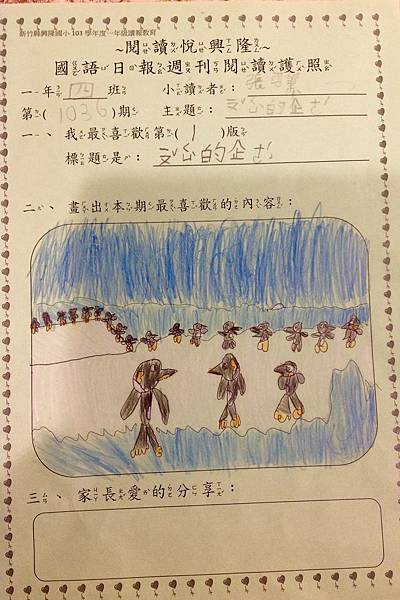 新竹縣興隆國小 103 學年度一年級讀報教育
~閱讀悅興隆~
國語日報週刊閱讀護照
一年四班 小讀者:
第(1036)期 主題: 的企ㄜˊ
一、我最喜歡第(1)版
標題是: 的企ㄜˊ
二、畫出本期最喜歡的內容:
三、家長愛的分享: